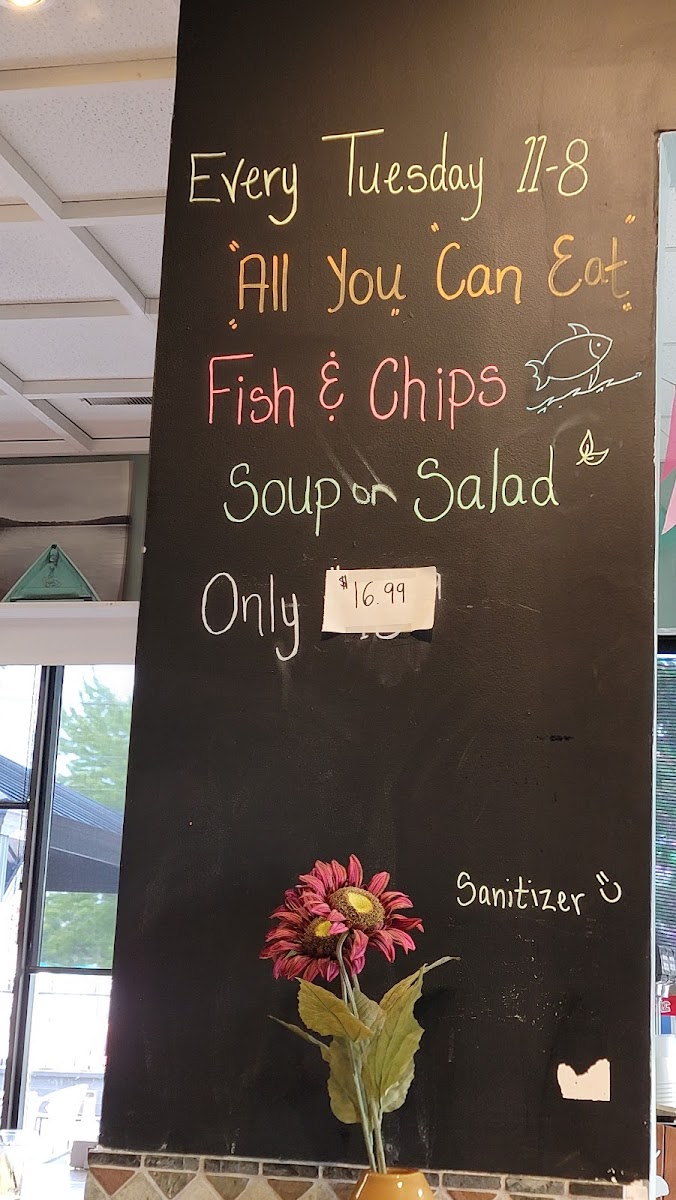 Every Tuesday 11-8
"All You" "Can Eat"
Fish & Chips
Soup or Salad
Only $16.99
Sanitizer